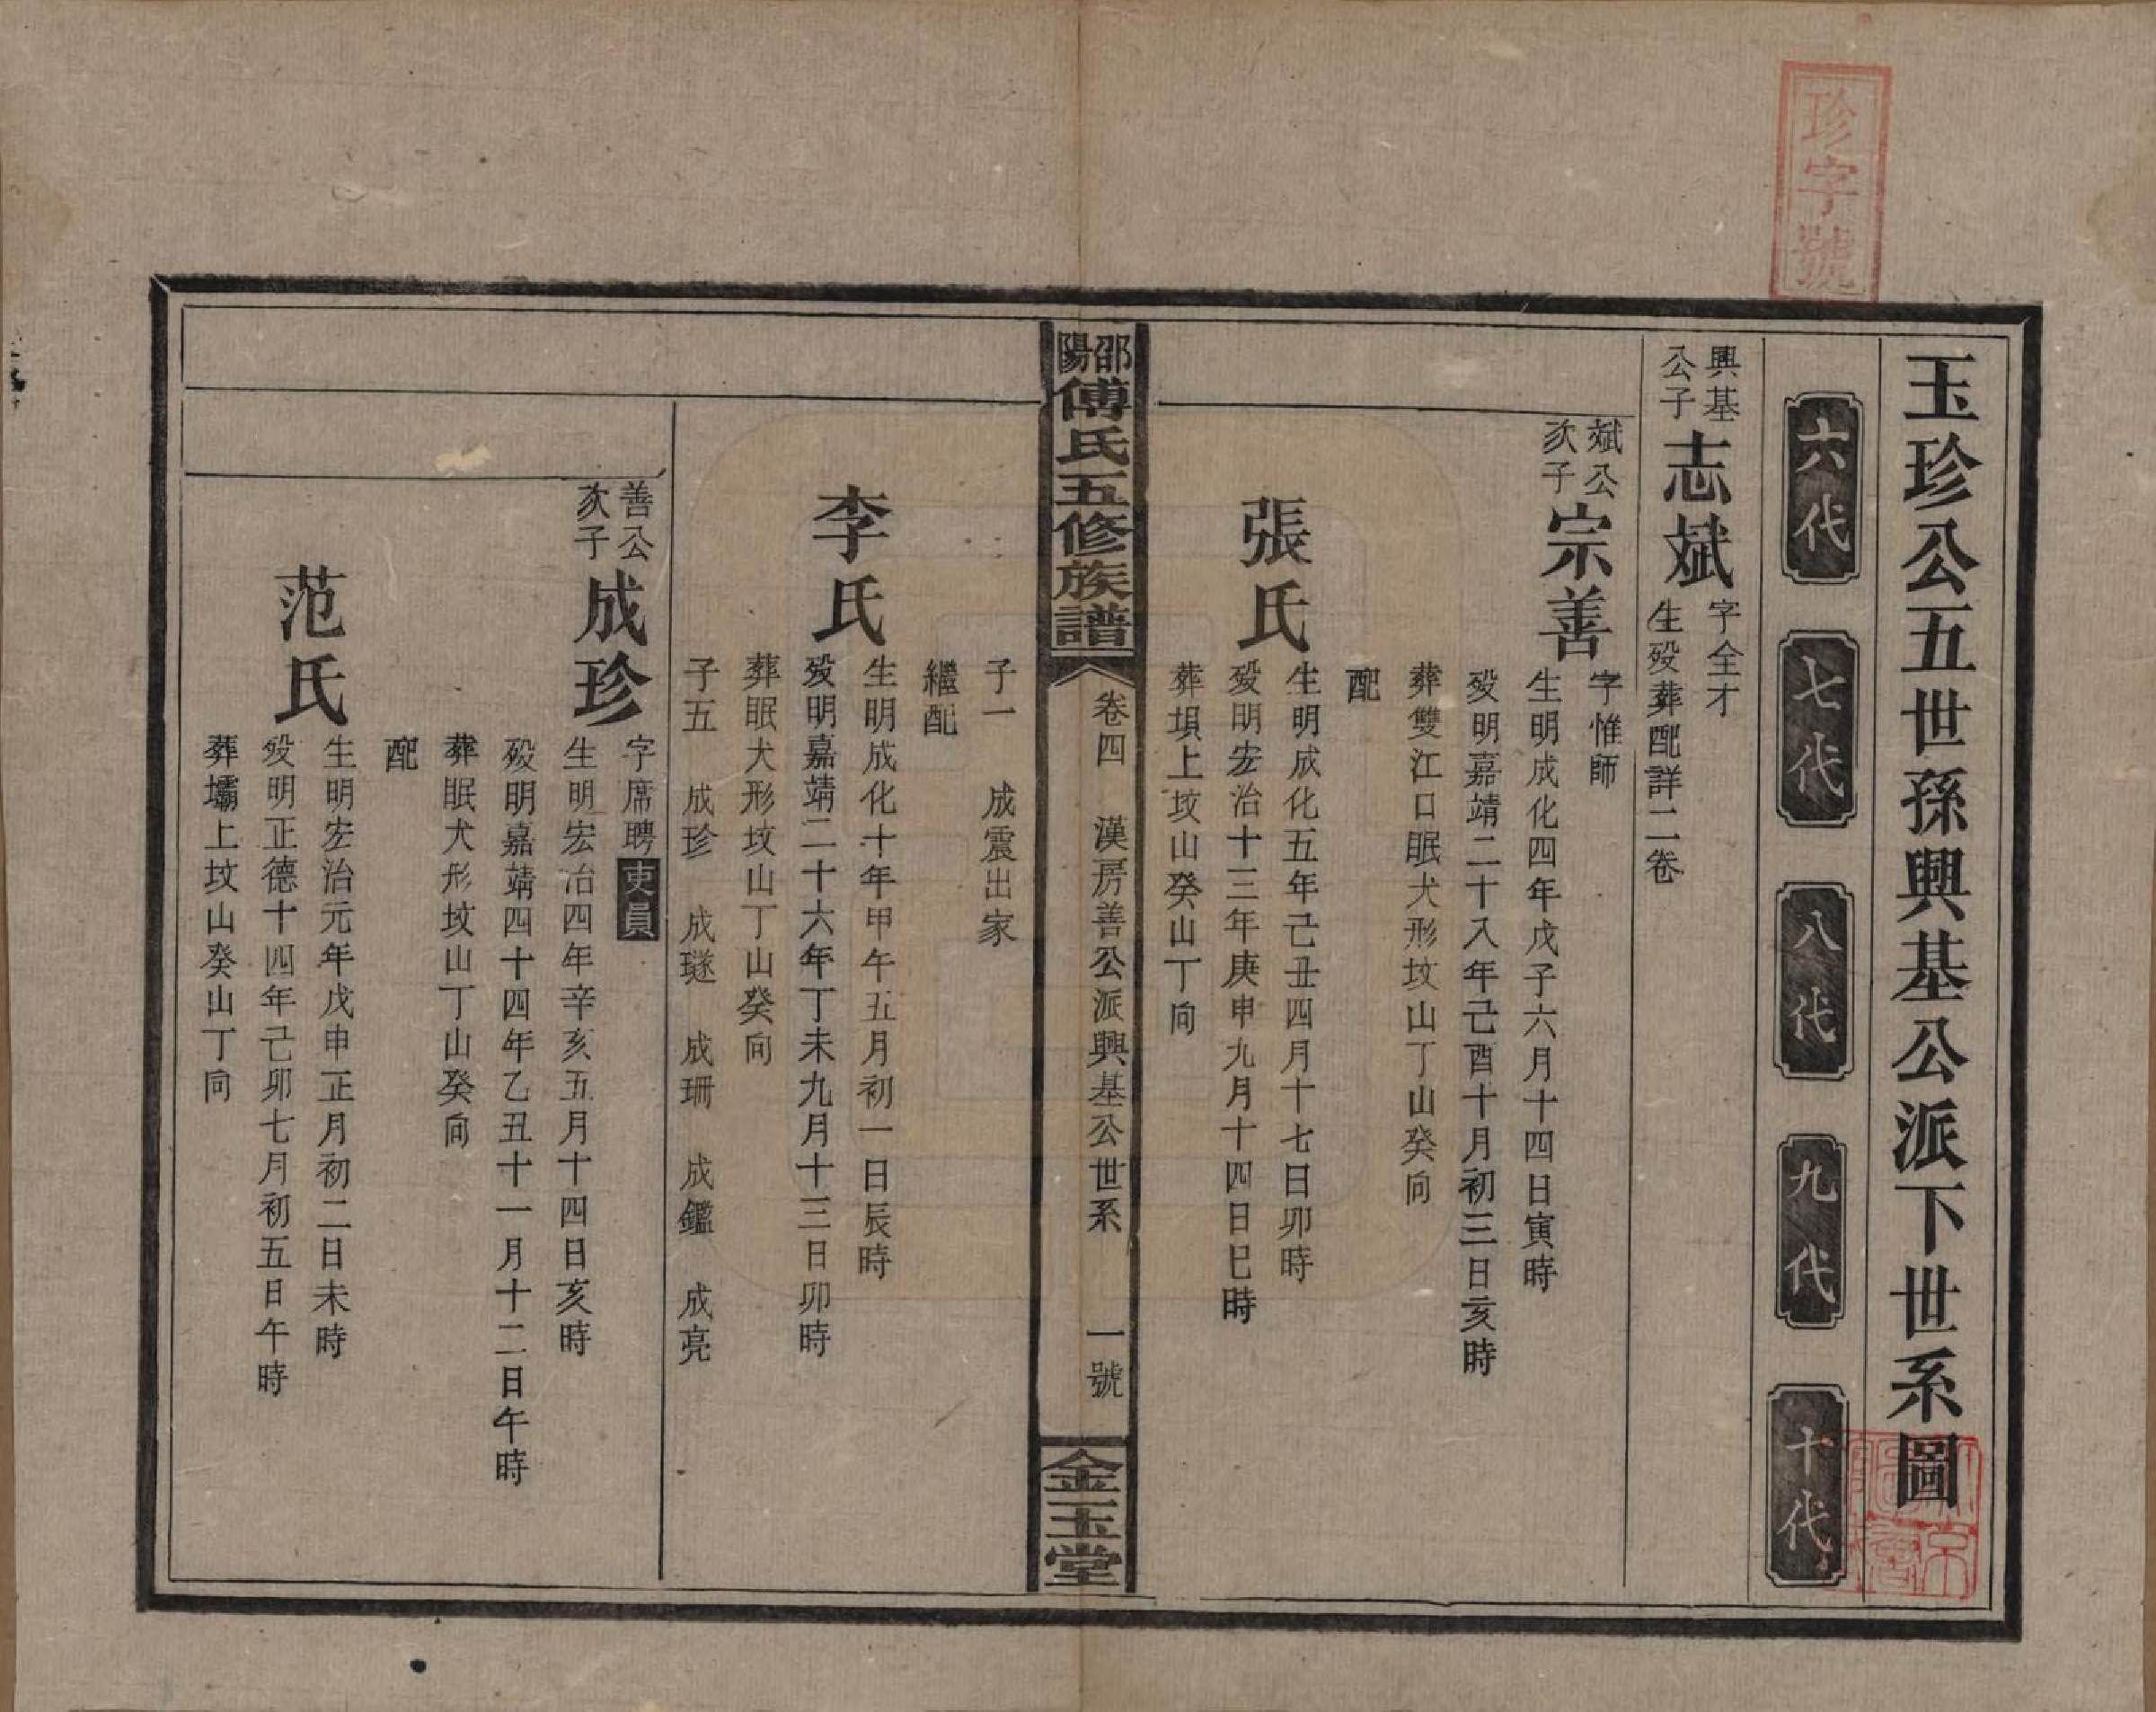 珍字號
玉珍公五世孫興基公派下世系圖
六代
七代
八代
九代
十代
興基公子
志斌
字全才
生歿葬配詳二卷
斌公次子
宗善
字惟師
生明成化四年戊子六月十四日寅時
歿明嘉靖二十八年己酉十月初三日亥時
葬雙江口眠犬形坟山丁山癸向
配
張氏
生明成化五年己丑四月十七日卯時
歿明宏治十三年庚申九月十四日巳時
葬垻上坟山癸山丁向
邵陽傅氏五修族譜
卷四 漢房善公派興基公世系 一號
金玉堂
子一 成震出家
繼配
李氏
生明成化十年甲午五月初一日辰時
歿明嘉靖二十六年丁未九月十三日卯時
葬眠犬形坟山丁山癸向
子五 成珍 成璲 成珊 成鑑 成亮
善公次子
成珍
字席聘吏員
生明宏治四年辛亥五月十四日亥時
歿明嘉靖四十四年乙丑十一月十二日午時
葬眠犬形坟山丁山癸向
配
范氏
生明宏治元年戊申正月初二日未時
歿明正德十四年己卯七月初五日午時
葬壩上坟山癸山丁向